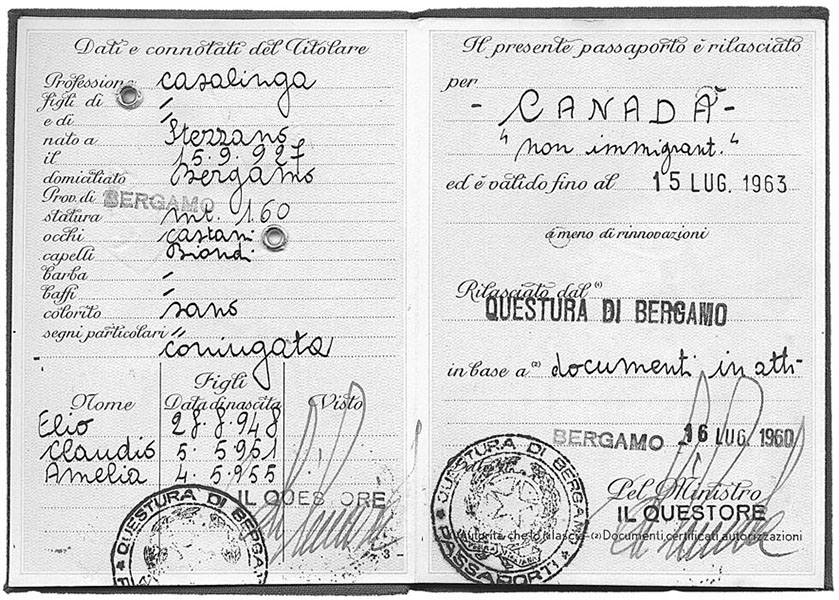 Dati e connotati del Titolare
Professione casalinga
figli di "
e di "
nato a Stezzano
il 15.9.927
domiciliato Bergamo
Prov. di BERGAMO
statura mt. 1.60
occhi castani
capelli Biondi
barba "
baffi "
colorito sano
segni particolari "
coniugata
Figli
Nome Data di nascita Visto
Elio 28.8.948
Claudio 5.5951
Amelia 4.5955
IL QUESTORE
QUESTURA DI BERGAMO
3
Il presente passaporto è rilasciato
per
- CANADÀ -
"non immigrant."
ed è valido fino al 15 LUG. 1963
a meno di rinnovazioni
Rilasciato dal (1)
QUESTURA DI BERGAMO
in base a (2) documenti in atti
BERGAMO 16 LUG. 1960
QUESTURA DI BERGAMO
PASSAPORTI
Pel Ministro
IL QUESTORE
Autorità che lo rilascia - (2) Documenti, certificati autorizzazioni